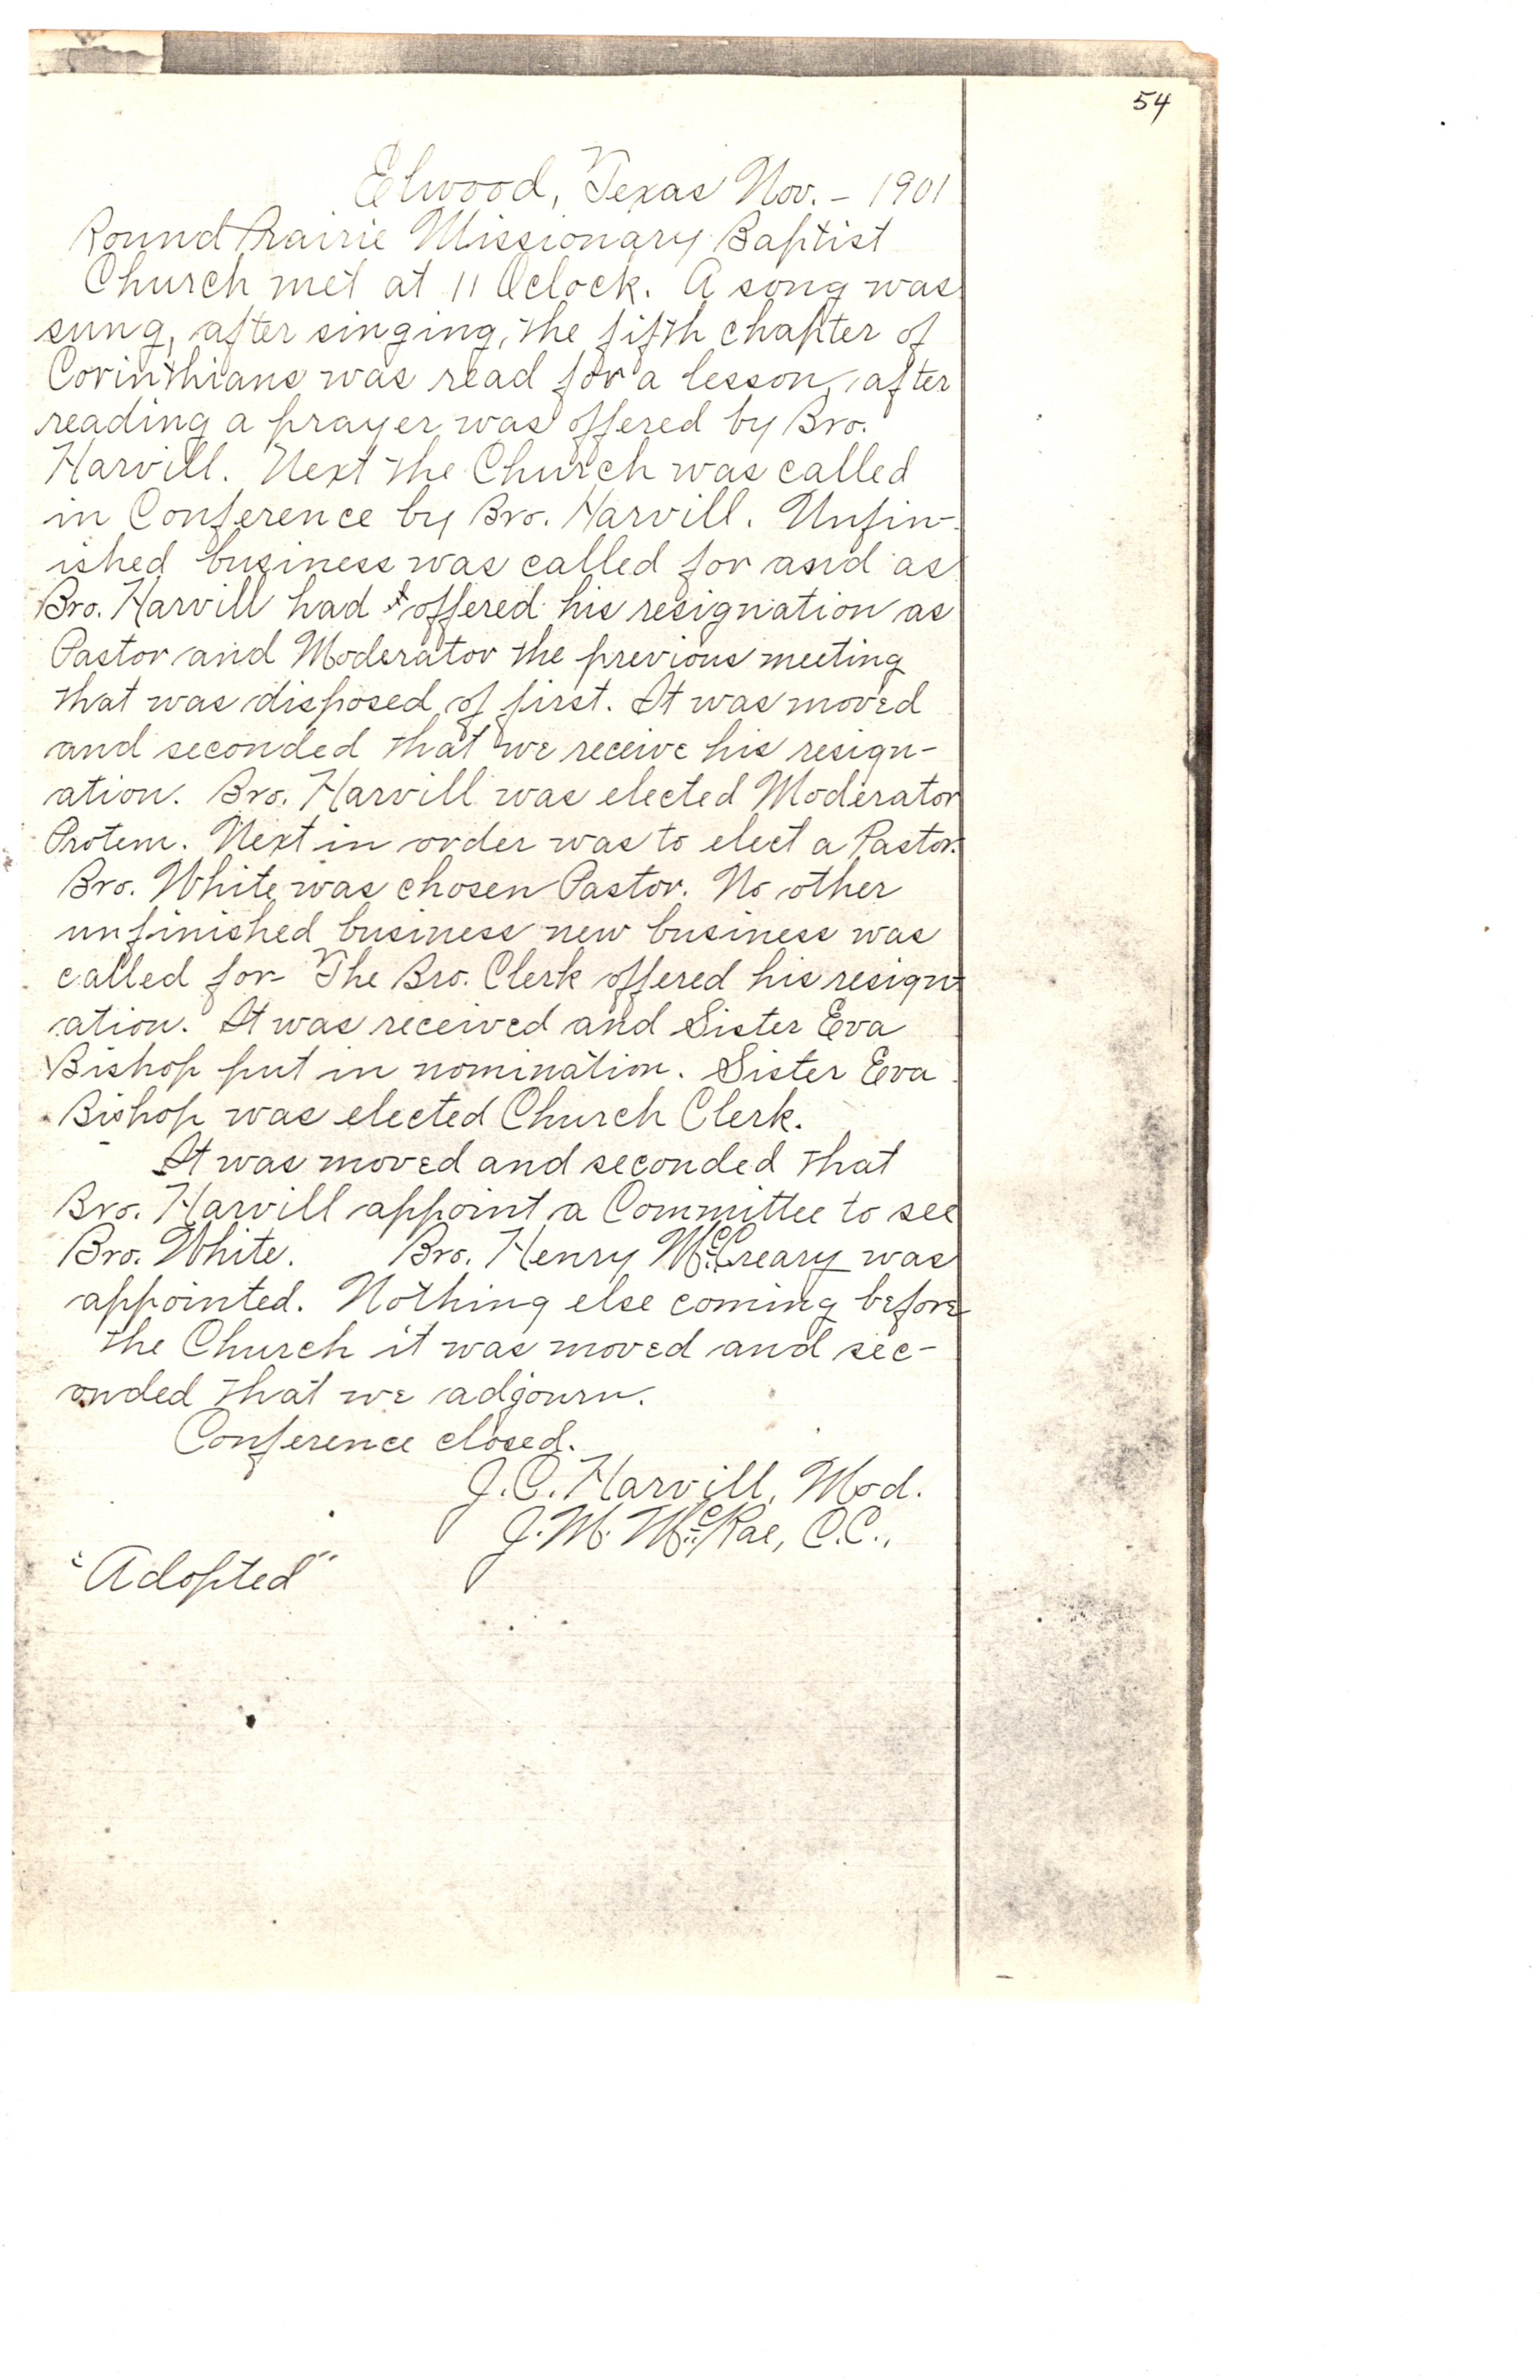 54
Elwood, Texas Nov. - 1901
Round Prairie Missionary Baptist
Church met at 11 Oclock. A song was
sung, after singing, the fifth chapter of
Corinthians was read for a lesson, after
reading a prayer was offered by Bro.
Harvill. Next the Church was called
in Conference by Bro. Harvill. Unfin-
ished business was called for and as
Bro. Harvill had offered his resignation as
Pastor and Moderator the previous meeting
that was disposed of first. It was moved
and seconded that we receive his resign-
ation. Bro. Harvill was elected Moderator
Protem. Next in order was to elect a Pastor.
Bro. White was chosen Pastor. No other
unfinished business new business was
called for The Bro. Clerk offered his resign-
ation. It was received and Sister Eva
Bishop put in nomination. Sister Eva
Bishop was elected Church Clerk.
It was moved and seconded that
Bro. Harvill appoint a Committee to see
Bro. White. Bro. Henry McCreary was
appointed. Nothing else coming before
the Church it was moved and sec-
onded that we adjourn.
Conference closed.
J.C. Harvill, Mod.
J.M. McRae, C.C.,
"Adopted"